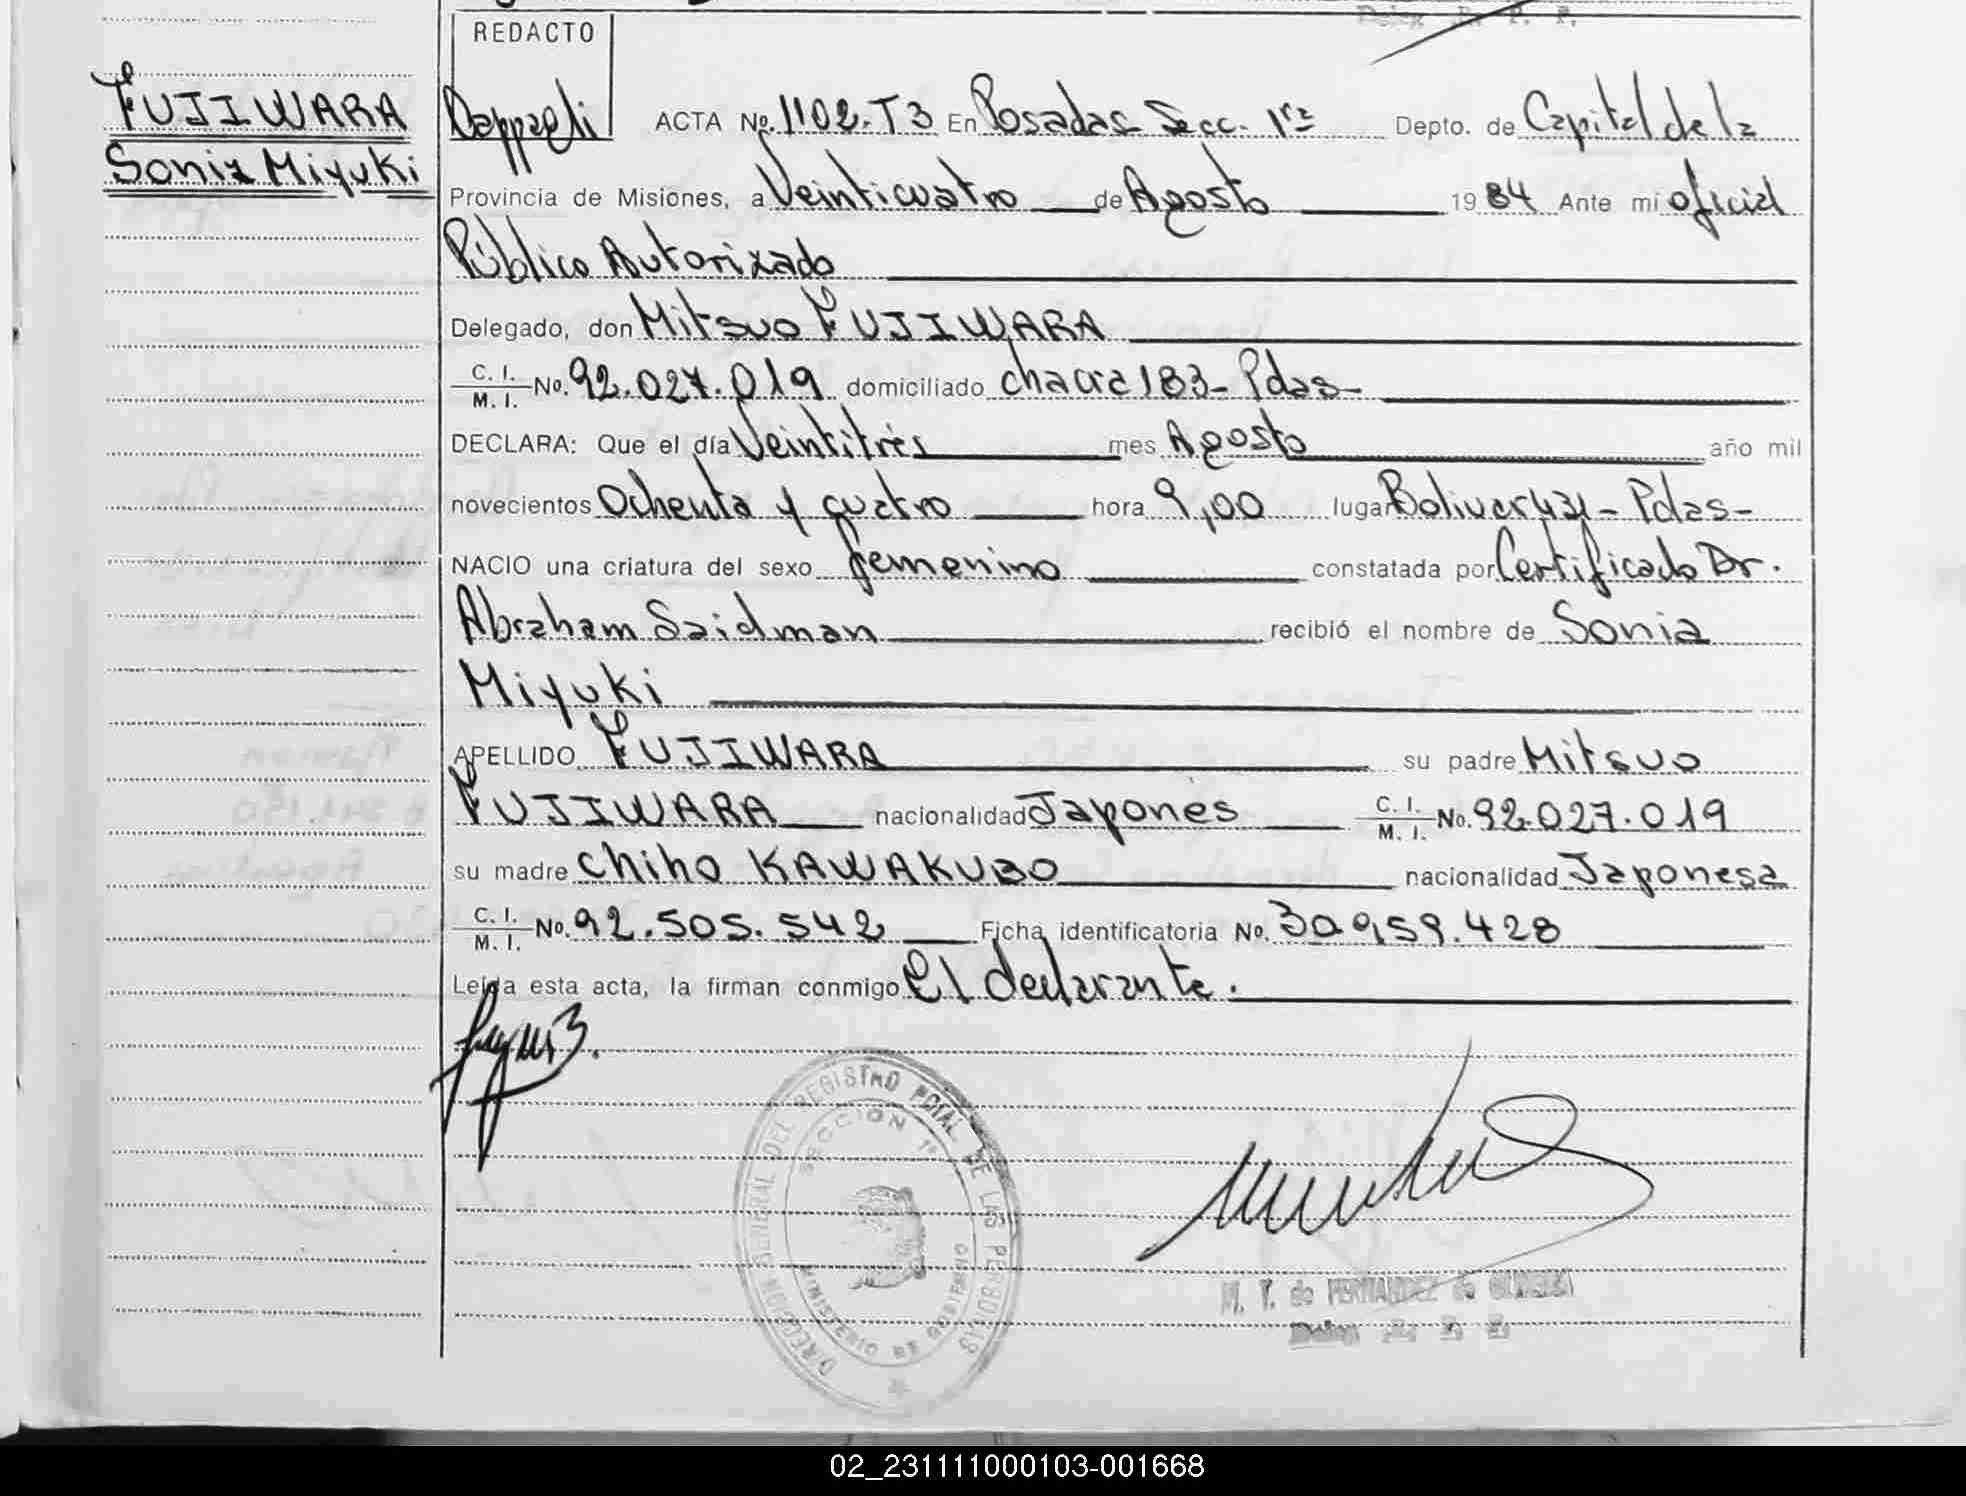 REDACTO
FUJIWARA
Sonia Miyuki
ACTA No. 1102-T3 En Posadas Secc. 1ra Depto. de Capital de la
Provincia de Misiones, a Veinticuatro de Agosto 1984 Ante mi oficial
Público Autorizado
Delegado, don Mitsuo FUJIWARA
C. I. M. I. No. 92.027.019 domiciliado chacra 183- Pdas-
DECLARA: Que el día Veintitrés mes Agosto año mil
novecientos Ochenta y cuatro hora 9,00 lugar Bolivar 431- Pdas-
NACIO una criatura del sexo femenino constatada por Certificado Dr.
Abraham Saidman recibió el nombre de Sonia
Miyuki
APELLIDO FUJIWARA su padre Mitsuo
FUJIWARA nacionalidad Japones C. I. M. I. No. 92.027.019
su madre Chiho KAWAKUBO nacionalidad Japonesa
C. I. M. I. No. 92.505.542 Ficha identificatoria No. 30.959.428
Leída esta acta, la firman conmigo El declarante.
DIRECCION GENERAL DEL REGISTRO PCIAL DE LAS PERSONAS
SECCION 1a
MINISTERIO DE GOBIERNO
M. T. de FERNANDEZ de OLIVEIRA
02_231111000103-001668